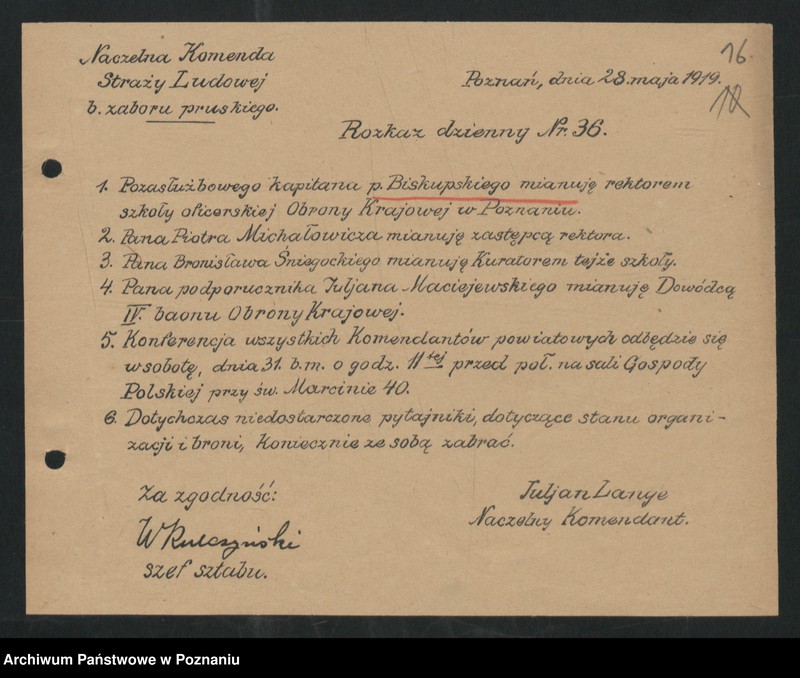 16.
Naczelna Komenda
Straży Ludowej
b. zaboru pruskiego.
Poznań, dnia 28. maja 1919.
Rozkaz dzienny Nr. 36.
1. Pozasłużbowego kapitana p. Biskupskiego mianuję rektorem
szkoły oficerskiej Obrony Krajowej w Poznaniu.
2. Pana Piotra Michałowicza mianuję zastępcą rektora.
3. Pana Bronisława Śniegockiego mianuję Kuratorem tejże szkoły.
4. Pana podporucznika Juljana Maciejewskiego mianuję Dowódcą
IV. baonu Obrony Krajowej.
5. Konferencja wszystkich Komendantów powiatowych odbędzie się
w sobotę, dnia 31. b.m. o godz. 11tej przed poł. na sali Gospody
Polskiej przy św. Marcinie 40.
6. Dotychczas niedostarczone pytajniki, dotyczące stanu organi-
zacji i broni, koniecznie ze sobą zabrać.
Za zgodność:
W Kulczyński
szef sztabu.
Juljan Lange
Naczelny Komendant.
Archiwum Państwowe w Poznaniu